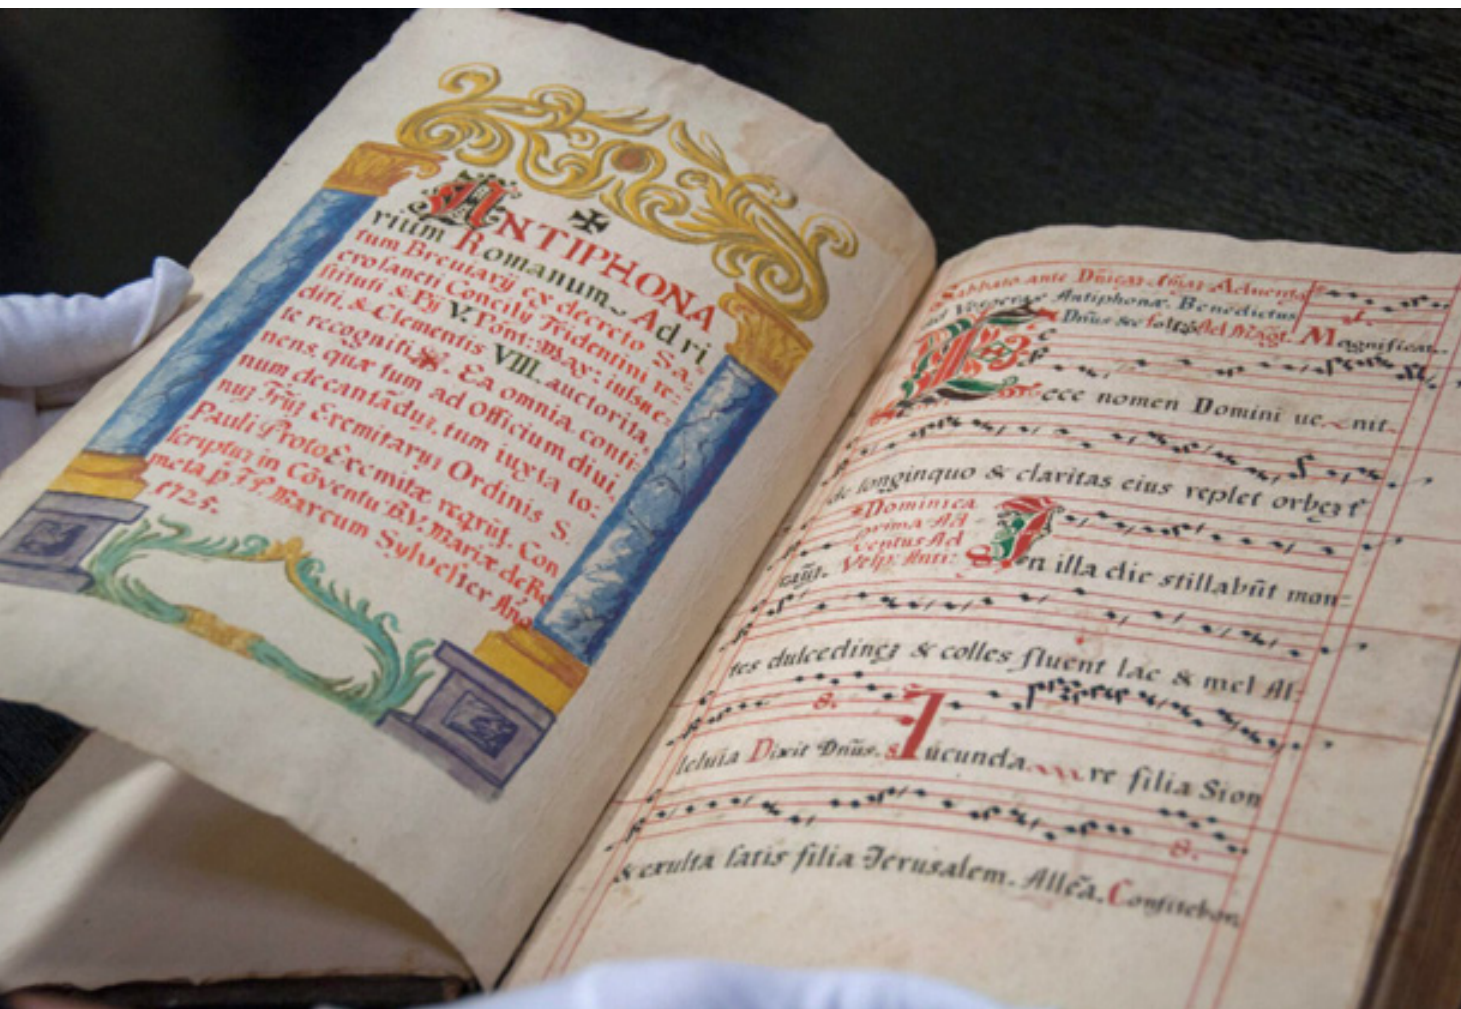 ANTIPHONA
rium Romanum Ad ri
tum Breuiarij ex decreto Sa
crosancti Concilij Tridentini re:
stituti & Pij V. Pont: Max: iussu e:
diti, & Clementis VIII. auctorita
te recogniti. Ea omnia conti:
nens, quæ tum ad Officium diui,
num decantãdũ, tum iuxta to:
nũ Frũ Eremitarũ Ordinis S.
Pauli ProtoEremitæ reqrũt. Con
scriptũ in Cõventu B.V. Mariæ de Re
meta. p. Fr. Marcum Sylvester Año
1725.
Sabbato ante Dñicaz Adventus
Vesperas Antiphonæ. Benedictus
Dñus Ad Magt. Magnificat.
Ecce nomen Domini ue nit
de longinquo & claritas eius replet orbeʒ t
Dominica
prima Ad
ventus Ad
Vesp: Anti:
raũt. In illa die stillabũt mon:
tes dulcedineʒ & colles fluent lac & mel Al:
leluia Dixit Dñus. Iucunda re filia Sion
& exulta satis filia Jerusalem. Allẽa. Confitebor